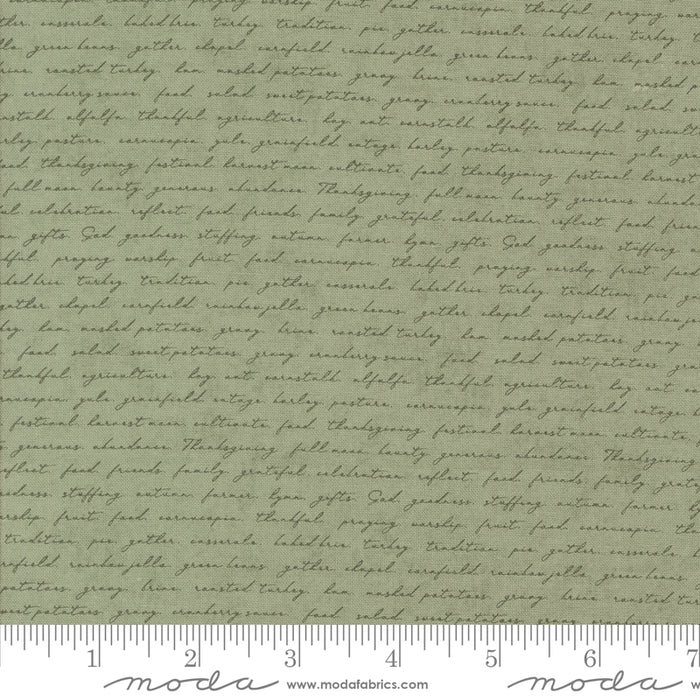 praying worship fruit food cornucopia thankful praying
casserole baked brie turkey tradition pie gather casserole baked brie turkey
green beans gather chapel cornfield rainbow jello green beans gather chapel
roasted turkey ham mashed potatoes gravy brine roasted turkey ham mashed
cranberry sauce food salad sweet potatoes gravy cranberry sauce food salad
alfalfa thankful agriculture hay oat cornstalk alfalfa thankful
pasture cornucopia yule grainfield cotage barley pasture cornucopia yule
thanksgiving festival harvest moon cultivate food thanksgiving festival harvest
full moon bounty generous abundance Thanksgiving full moon bounty generous
celebration reflect food friends family grateful celebration reflect food
gifts God goodness stuffing autumn farmer hymn gifts God goodness stuffing
praying worship fruit food cornucopia thankful praying worship fruit
baked brie turkey tradition pie gather casserole baked brie turkey tradition pie
gather chapel cornfield rainbow jello green beans gather chapel cornfield
ham mashed potatoes gravy brine roasted turkey ham mashed potatoes gravy
food salad sweet potatoes gravy cranberry sauce food salad sweet potatoes
thankful agriculture hay oat cornstalk alfalfa thankful agriculture hay oat
yule grainfield cotage barley pasture cornucopia yule grainfield cotage
festival harvest moon cultivate food thanksgiving festival harvest moon cultivate
generous abundance Thanksgiving full moon bounty generous abundance Thanksgiving
reflect food friends family grateful celebration reflect food friends family
stuffing autumn farmer hymn gifts God goodness stuffing autumn farmer
fruit food cornucopia thankful praying worship fruit food cornucopia
tradition pie gather casserole baked brie turkey tradition pie gather casserole
rainbow jello green beans gather chapel cornfield rainbow jello green beans
potatoes gravy brine roasted turkey ham mashed potatoes gravy brine roasted
sweet potatoes gravy cranberry sauce food salad sweet potatoes gravy
1 2 3 4 5 6 7
moda www.modafabrics.com moda